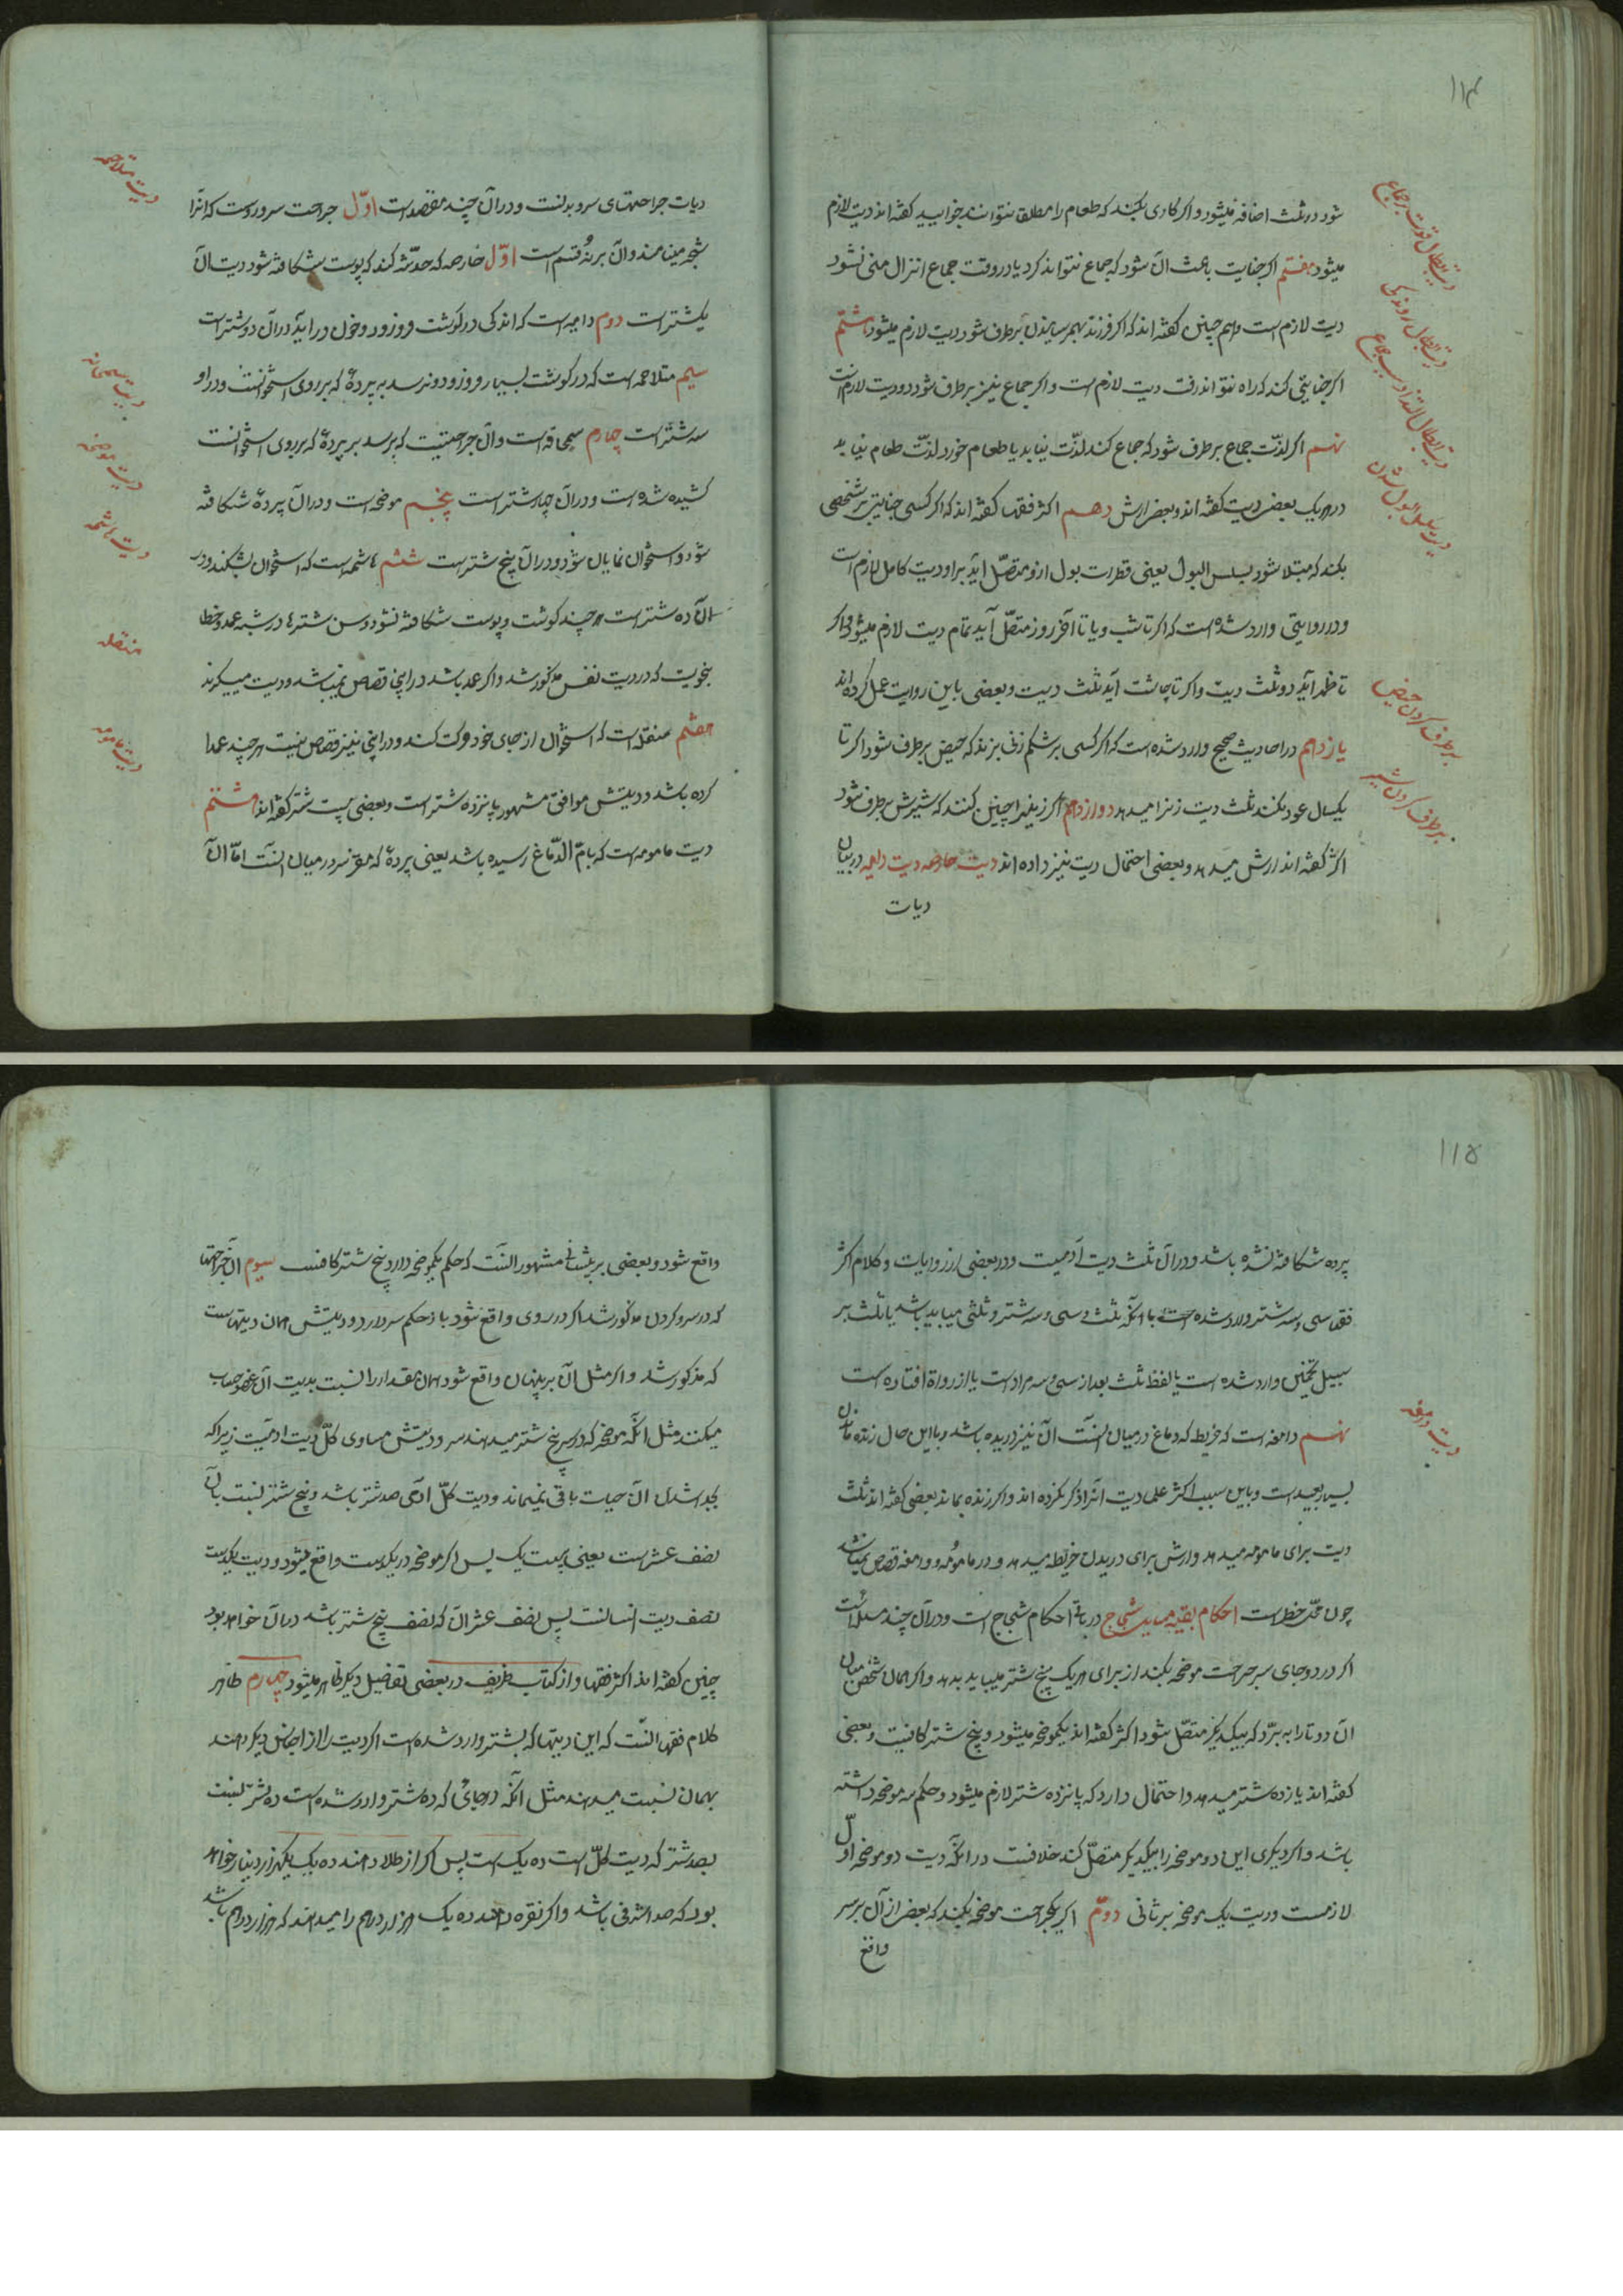 ۱۱۴
شود در ثلث اضافه میشود و اکر کاری بکند که طعام را مطلق نتواند خوایید کفته‌اند دیت لازم
میشود هفتم اکر جنایت باعث آن شود که جماع نتواند کرد یا در وقت جماع انزال منی نشود
دیت لازم است و هم چنین کفته‌اند که اکر فرزند بهم رسانیدن برطرف شود دیت لازم میشود هشتم
اکر جنایتی کند که راه نتواند رفت دیت لازم است و اکر جماع نیز برطرف شود دو دیت لازم است
نهم اکر لذّت جماع برطرف شود که جماع کند لذّت نیابد یا طعام خورد لذّت طعام نیابد
در هر یک بعضی دیت کفته‌اند و بعضی ارش دهم اکثر فقها کفته‌اند که اکر کسی جنایتی بر شخصی
بکند که مبتلا شود بسلس البول یعنی قطرات بول ازو متصّل آید بر او دیت کامل لازم است
و در روایتی وارد شده است که اکر تا شب و یا تا آخر روز متصّل آید تمام دیت لازم میشود و اکر
تا ظهر آید دو ثلث دیت و اکر تا چاشت آید ثلث دیت و بعضی باین روایت عمل کرده‌اند
یازدهم در احادیث صحیح وارد شده است که اکر کسی بر شکم زن بزند که حیض برطرف شود اکر تا
یکسال عود نکند ثلث دیت زن را میدهد دوازدهم اکر زنیرا چنین کنند که شیرش برطرف شود
اکثر کفته‌اند ارش میدهد و بعضی احتمال دیت نیز داده‌اند دیت خارصه دیت دامیه در بیان
دیات
دیت ابطال قوت بر جماع
دیت ابطال روندکی
دیت ابطال التذاذ بسبب جماع
در سلس البول شدن
برطرف کردن حیض
برطرف کردن شیر
دیات جراحتهای سر و بدنست و در آن چند مقصد است اوّل جراحت سر و روست که آنرا
شجّه مینامند و آن بر نُه قسم است اوّل خارصه که خدشه کند که پوست شکافته شود دیت آن
یکشتر است دوم دامیه است که اندکی در کوشت فرو رود و خون در آید در آن دو شتر است
سیم متلاحمه است که در کوشت بسیار فرو رود و نرسد به پردهٔ که بر روی استخوانست و در او
سه شتر است چهارم سمحاقه است و آن جراحتیست که برسد بر پردهٔ که بر روی استخوانست
کشیده شده است و در آن چهار شتر است پنجم موضحه است و در آن پردهٔ شکافته
شود و استخوان نمایان شود و در آن پنج شتر است ششم هاشمه است که استخوان بشکند و در
آن ده شتر است هر چند کوشت و پوست شکافته نشود و سن شترها در شبه عمد و خطا
بنحویست که در دیت نفس مذکور شد و اکر عمد باشد در اینها قصاص نمیباشد و دیت میکیرند
هفتم منقله است که استخوان از جای خود حرکت کند و در این نیز قصاص نیست هر چند عمدا
کرده باشد و دیتش موافق مشهور پانزده شتر است و بعضی بیست شتر کفته‌اند هشتم
دیت مامومه است که به امّ الدّماغ رسیده باشد یعنی پردهٔ که مغز سر در میان آنست امّا آن
دیت متلاحمه
دیت سمحاقه
دیت موضحه
دیت هاشمه
منقله
دیت مامومه
۱۱۵
پرده شکافته نشده باشد و در آن ثلث دیت آدمیست و در بعضی از روایات و کلام اکثر
فقها سی و سه شتر وارد شده است با آنکه ثلث سی و سه شتر و ثلثی میباید باشد یا ثلث بر
سبیل تخمین وارد شده است یا لفظ ثلث بعد از سی و سه مراد است یا از رواة افتاده است
نهم دامغه است که خریطه که دماغ در میان آنست آن نیز دریده باشد و با این حال زنده ماندن
بسیار بعید است و باین سبب اکثر علما دیت آنرا ذکر نکرده‌اند و اکر زنده بماند بعضی کفته‌اند ثلث
دیت برای مامومه میدهد و ارش برای دریدن خریطه میدهد و در مامومه و دامغه قصاص نمیباشد
چون محّل خطر است احکام بقیه مسایل شجاج در باقی احکام شجاج است و در آن چند مسئله است
اکر در دو جای سر جراحت موضحه بکند از برای هر یک پنج شتر میباید بدهد و اکر همان شخص میان
آن دو تا را به برّد که بیکدیکر متصّل شود اکثر کفته‌اند یکموضحه میشود و پنج شتر کافیست و بعضی
کفته‌اند پانزده شتر میدهد و احتمال دارد که پانزده شتر لازم میشود و حکم سه موضحه داشته
باشد و اکر دیکری این دو موضحه را بیکدیکر متصّل کند خلافست در آنکه دیت دو موضحه اوّل
لازمست و دیت یک موضحه بر ثانی دوّم اکر یکجراحت موضحه بکند که بعضی از آن بر سر
واقع
دیت دامغه
واقع شود و بعضی بر پیشانی مشهور آنست که حکم یکموضحه دارد و پنج شتر کافیست سیوم آن جراحتها
که در سر و کردن مذکور شد اکر در روی واقع شود باز حکم سر دارد و دیتش همان دیتهاست
که مذکور شد و اکر مثل آن بر بدن واقع شود همان مقدار را نسبت بدیت آن عضو حساب
میکنند مثل آنکه موضحه که در سر پنج شتر میدهند سر دیتش مساوی کلّ دیت ادمیست زیرا که
بجدا شدن آن حیات باقی نمیماند و دیت کلّ ادمی صد شتر باشد و پنج شتر نسبت بآن
نصف عشر است یعنی بیست یک پس اکر موضحه در یکدست واقع شود و دیت یکدست
نصف دیت انسانست پس نصف عشر آن که نصف پنج شتر باشد در آن خواهد بود
چنین کفته‌اند اکثر فقها و از کتاب ظریف در بعضی تفاصیل دیکر ظاهر میشود چهارم ظاهر
کلام فقها آنست که این دیتها که بشتر وارد شده است اکر دیت را از اجناس دیکر دهند
بهمان نسبت میدهند مثل آنکه در جائی که ده شتر وارد شده است ده شتر نسبت
بصد شتر که دیت کلّ است ده یک است پس اکر از طلا دهند ده یک یکهزار دینار خواهد
بود که صد اشرفی باشد و اکر نقره دهند ده یک ده هزار درهم را میدهند که هزار درهم باشد